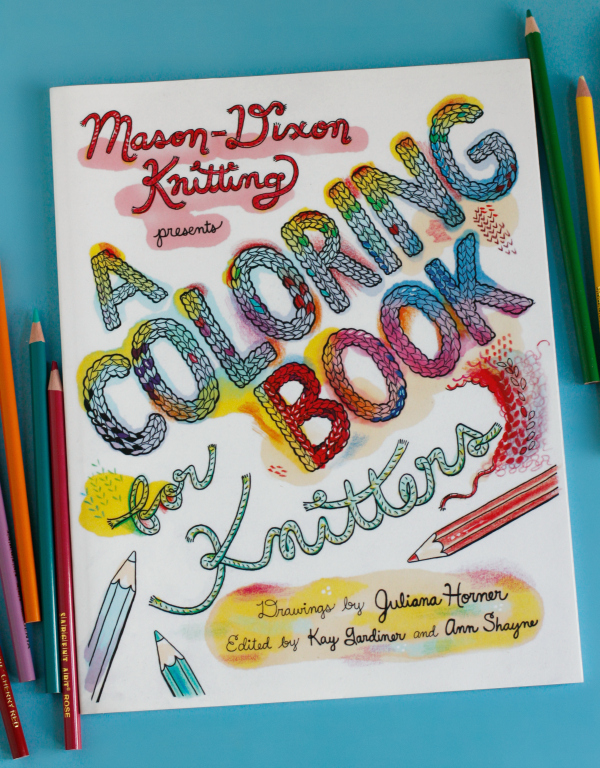 Mason-Dixon
Knitting
presents
A
COLORING
BOOK
for
Knitters
Drawings by Juliana Horner
Edited by Kay Gardiner and Ann Shayne
SARGENT ART ROSE
CHERRY RED